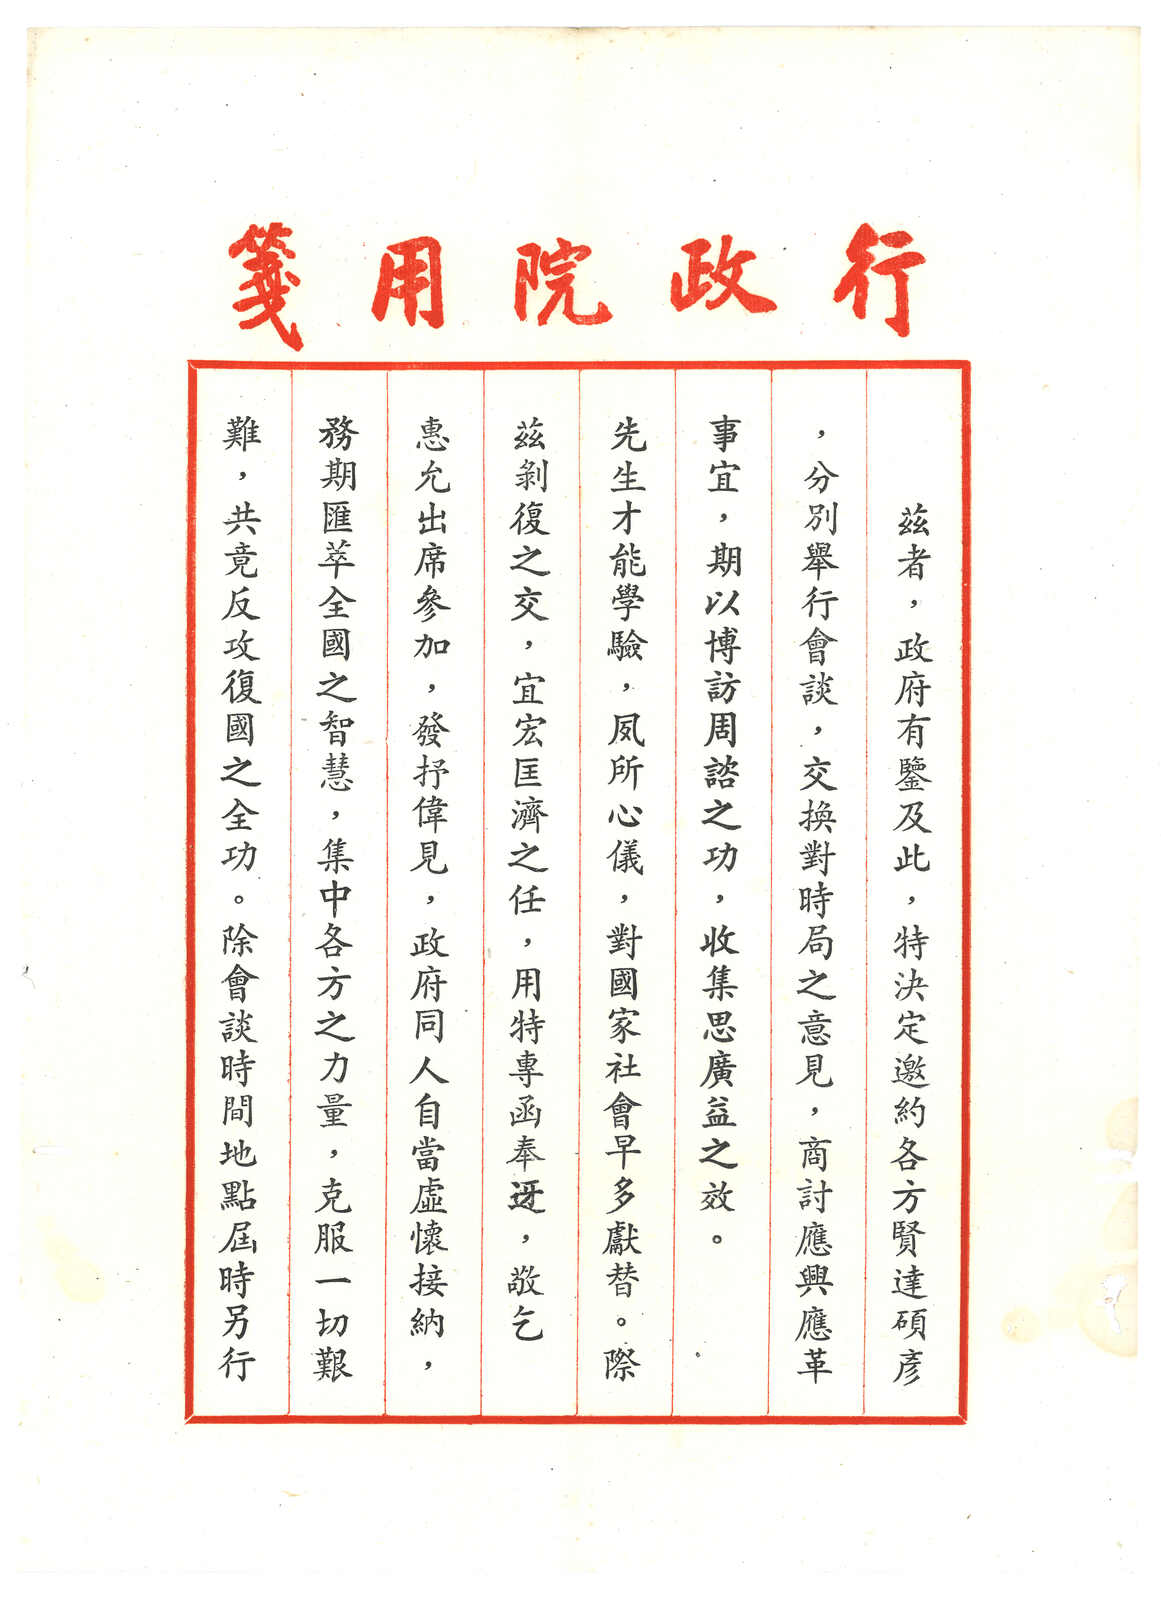 行政院用箋
茲者，政府有鑒及此，特決定邀約各方賢達碩彥
，分別舉行會談，交換對時局之意見，商討應興應革
事宜，期以博訪周諮之功，收集思廣益之效。
先生才能學驗，夙所心儀，對國家社會早多獻替。際
茲剝復之交，宜宏匡濟之任，用特專函奉迓，敬乞
惠允出席參加，發抒偉見，政府同人自當虛懷接納，
務期匯萃全國之智慧，集中各方之力量，克服一切艱
難，共竟反攻復國之全功。除會談時間地點屆時另行